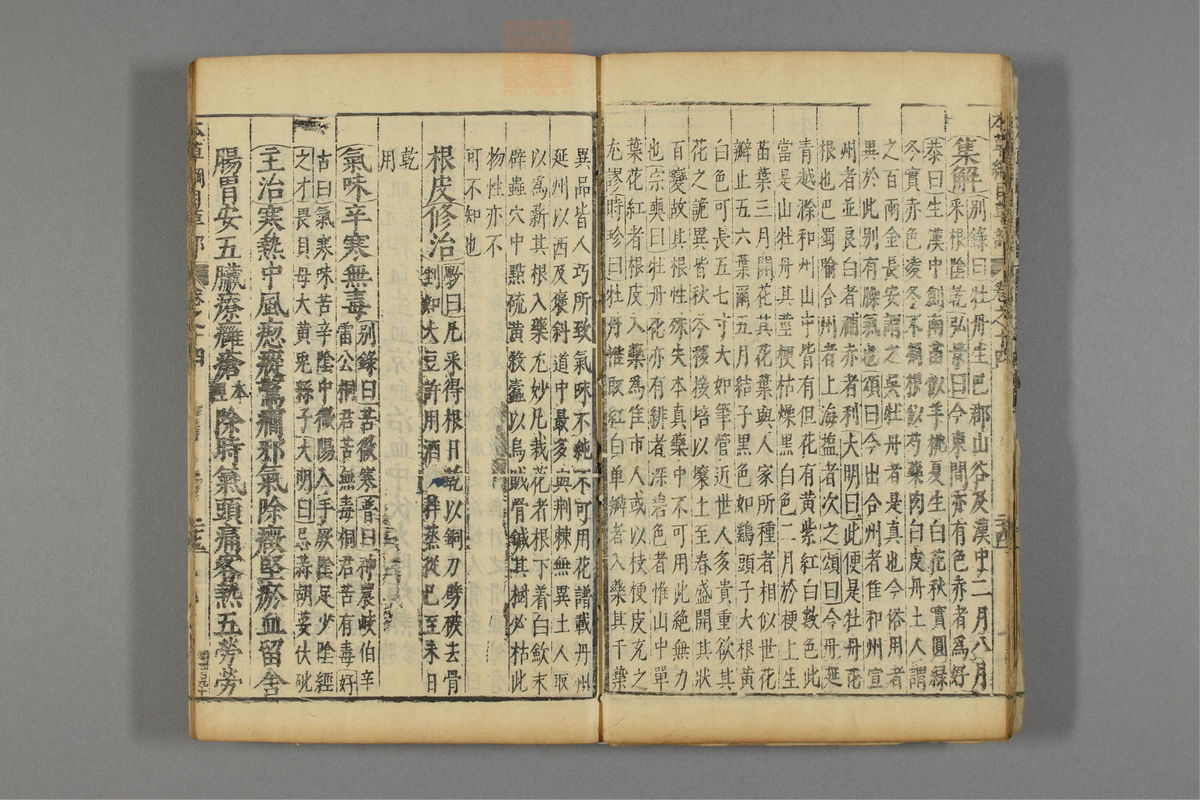 本草綱目草部 卷之十四 二十四
集解別錄曰牡丹生巴郡山谷及漢中二月八月
采根陰乾弘景曰今東間亦有色赤者爲好
恭曰生漢中劍南苗似羊桃夏生白花秋實圓綠
冬實赤色凌冬不凋根似芍藥肉白皮丹土人謂
之百兩金長安謂之吳牡丹者是真也今俗用者
異於此別有臊氣也頌曰今出合州者佳和州宣
州者並良白者補赤者利大明曰此便是牡丹花
根也巴蜀渝合州者上海鹽者次之頌曰今丹延
青越滁和州山中皆有但花有黃紫紅白數色此
當是山牡丹其莖梗枯燥黑白色二月於梗上生
苗葉三月開花其花葉與人家所種者相似世花
瓣止五六葉爾五月結子黑色如鷄頭子大根黃
白色可長五七寸大如筆管近世人多貴重欲其
花之詭異皆秋冬移接培以壤土至春盛開其狀
百變故其根性殊失本真藥中不可用此絕無力
也宗奭曰牡丹花亦有緋者深碧色者惟山中單
葉花紅者根皮入藥爲佳市人或以枝梗皮充之
尤謬時珍曰牡丹惟取紅白单瓣者入藥其千葉
異品皆人巧所致氣味不純不可用花譜載丹州
延州以西及褒斜道中最多與荆棘無異土人取
以爲薪其根入藥尤妙凡栽花者根下着白斂末
辟蟲穴中點硫黃殺蠹以烏賊骨鍼其樹必枯此
物性亦不
可不知也
根皮修治斆曰凡采得根日乾以銅刀劈破去骨
剉如大豆許用酒拌蒸從巳至未日
乾
用
氣味辛寒無毒別錄曰苦微寒普曰神農岐伯辛
雷公桐君苦無毒桐君苦有毒好
古曰氣寒味苦辛陰中微陽入手厥陰足少陰經
之才畏貝母大黃兎絲子大明曰忌蒜胡荽伏砒
主治寒熱中風瘛瘲驚癇邪氣除癥堅瘀血留舍
腸胃安五臟療癰瘡本經除時氣頭痛客熱五勞勞
本草綱目草部 卷之十四 二十五